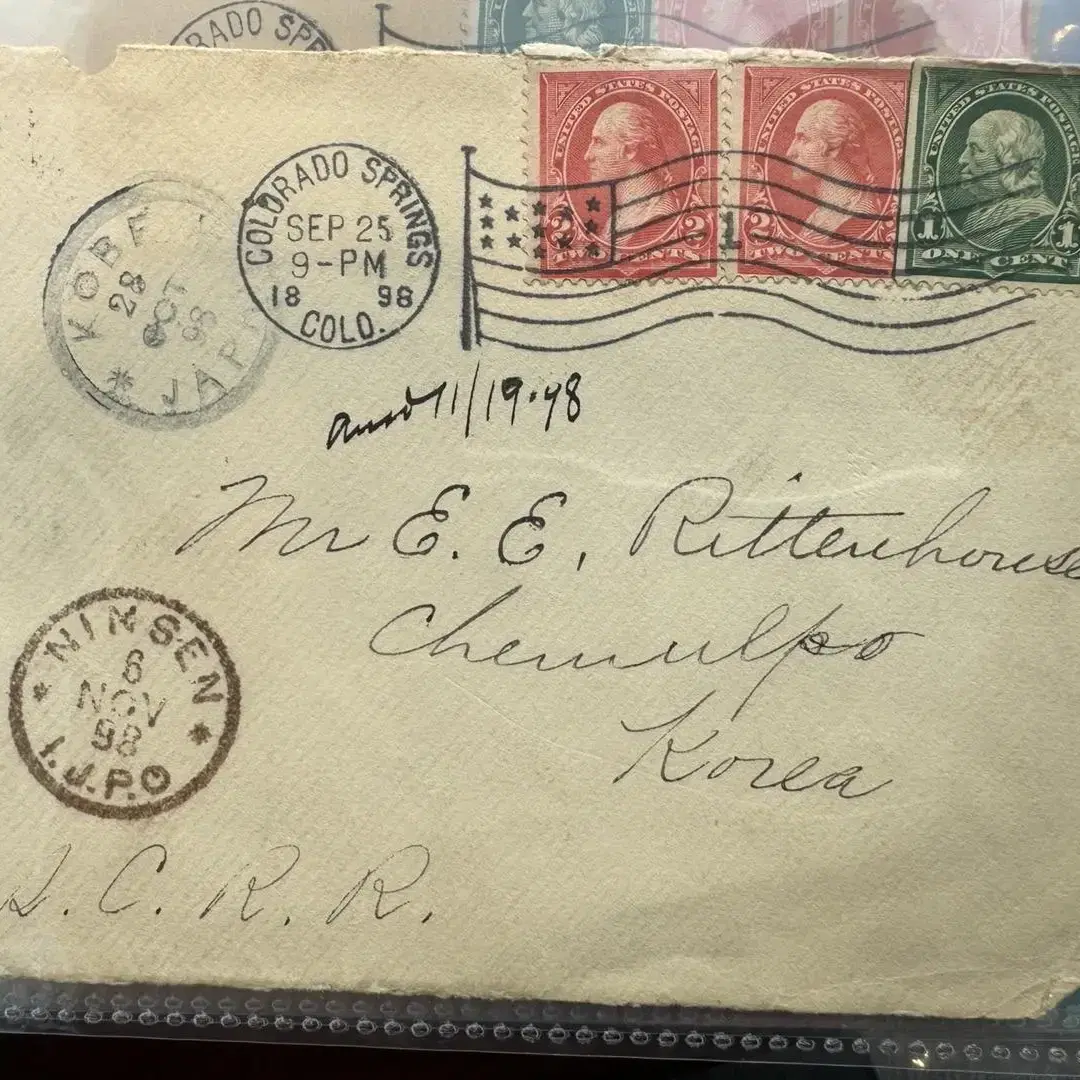 RADO SPR
UNITED STATES POSTAGE
2 2
TWO CENTS
UNITED STATES POSTAGE
2
TWO CENTS
UNITED STATES POSTAGE
1 1
ONE CENT
COLORADO SPRINGS
SEP 25
9-PM
18 98
COLO.
1
KOBE
28
OCT
98
JAP
11/19.98
Mr E. E. Rittenhouse
Chemulpo
Korea
NINSEN
6
NOV
98
I.J.P.O
C. R. R.